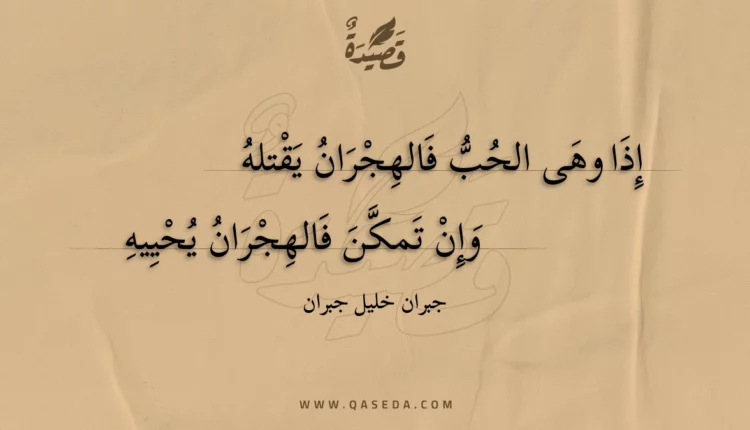 قَصِيدَةٌ
إِذَا وهَى الحُبُّ فَالهِجْرَانُ يَقْتلهُ
وَإِنْ تَمكَّنَ فَالهِجْرَانُ يُحْيِيهِ
جبران خليل جبران
WWW.QASEDA.COM